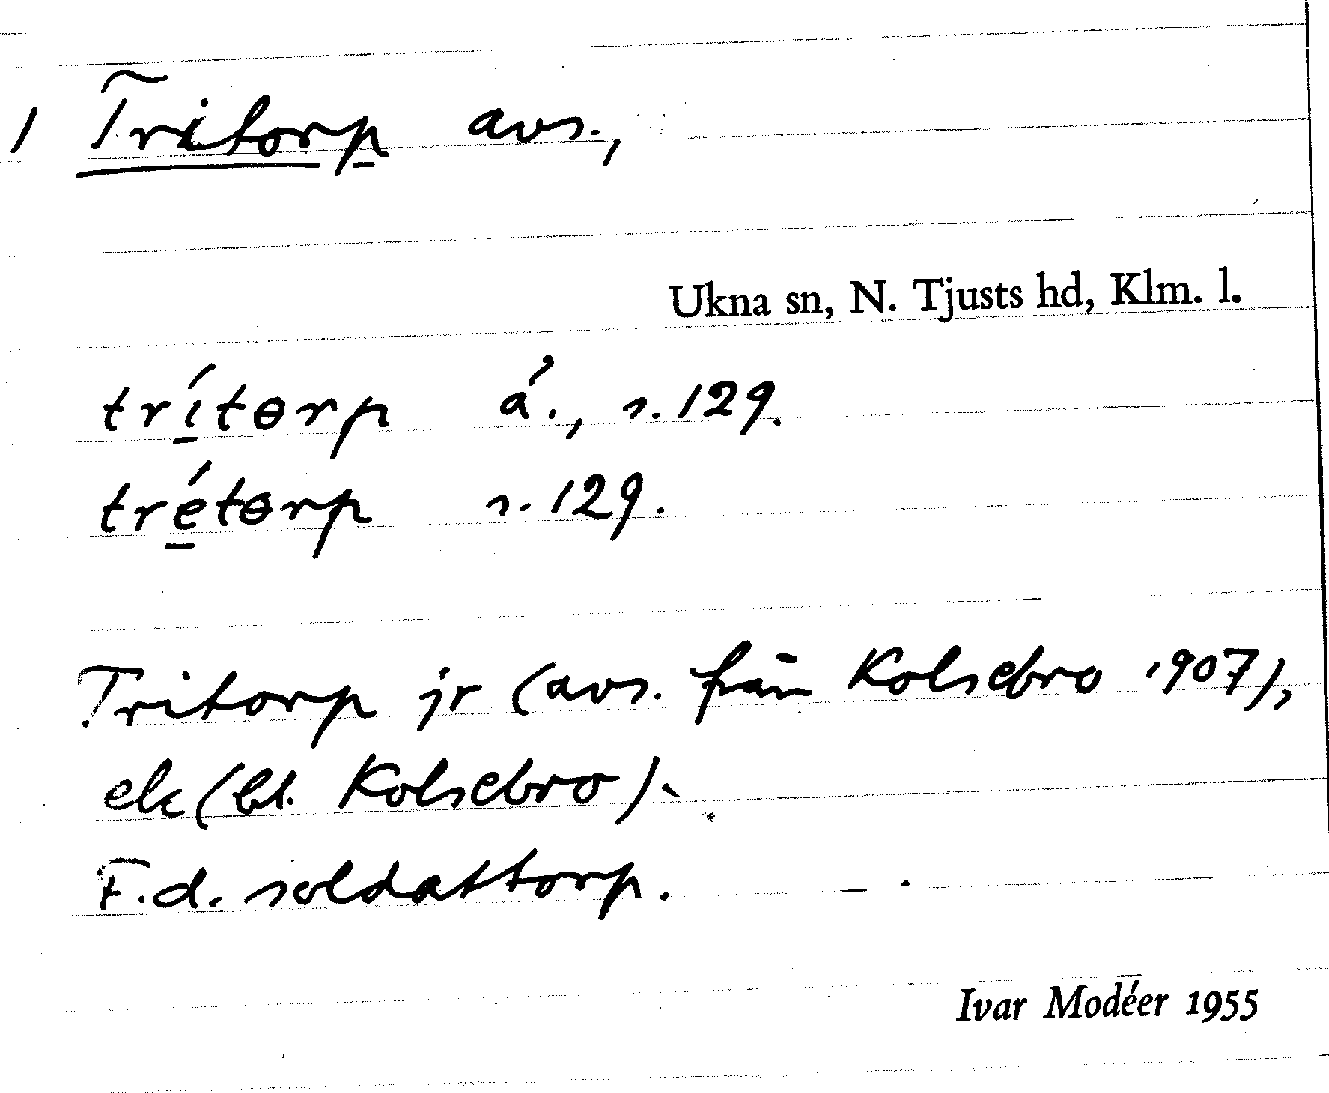 1 Tritorp avs.,
Ukna sn, N. Tjusts hd, Klm. l.
trı̱́tɵrp á., s. 129.
tré̱tɵrp s. 129.
Tritorp jr (avs. från Kolsebro 1907),
ek (bl. Kolsebro).
F.d. soldattorp.
Ivar Modéer 1955